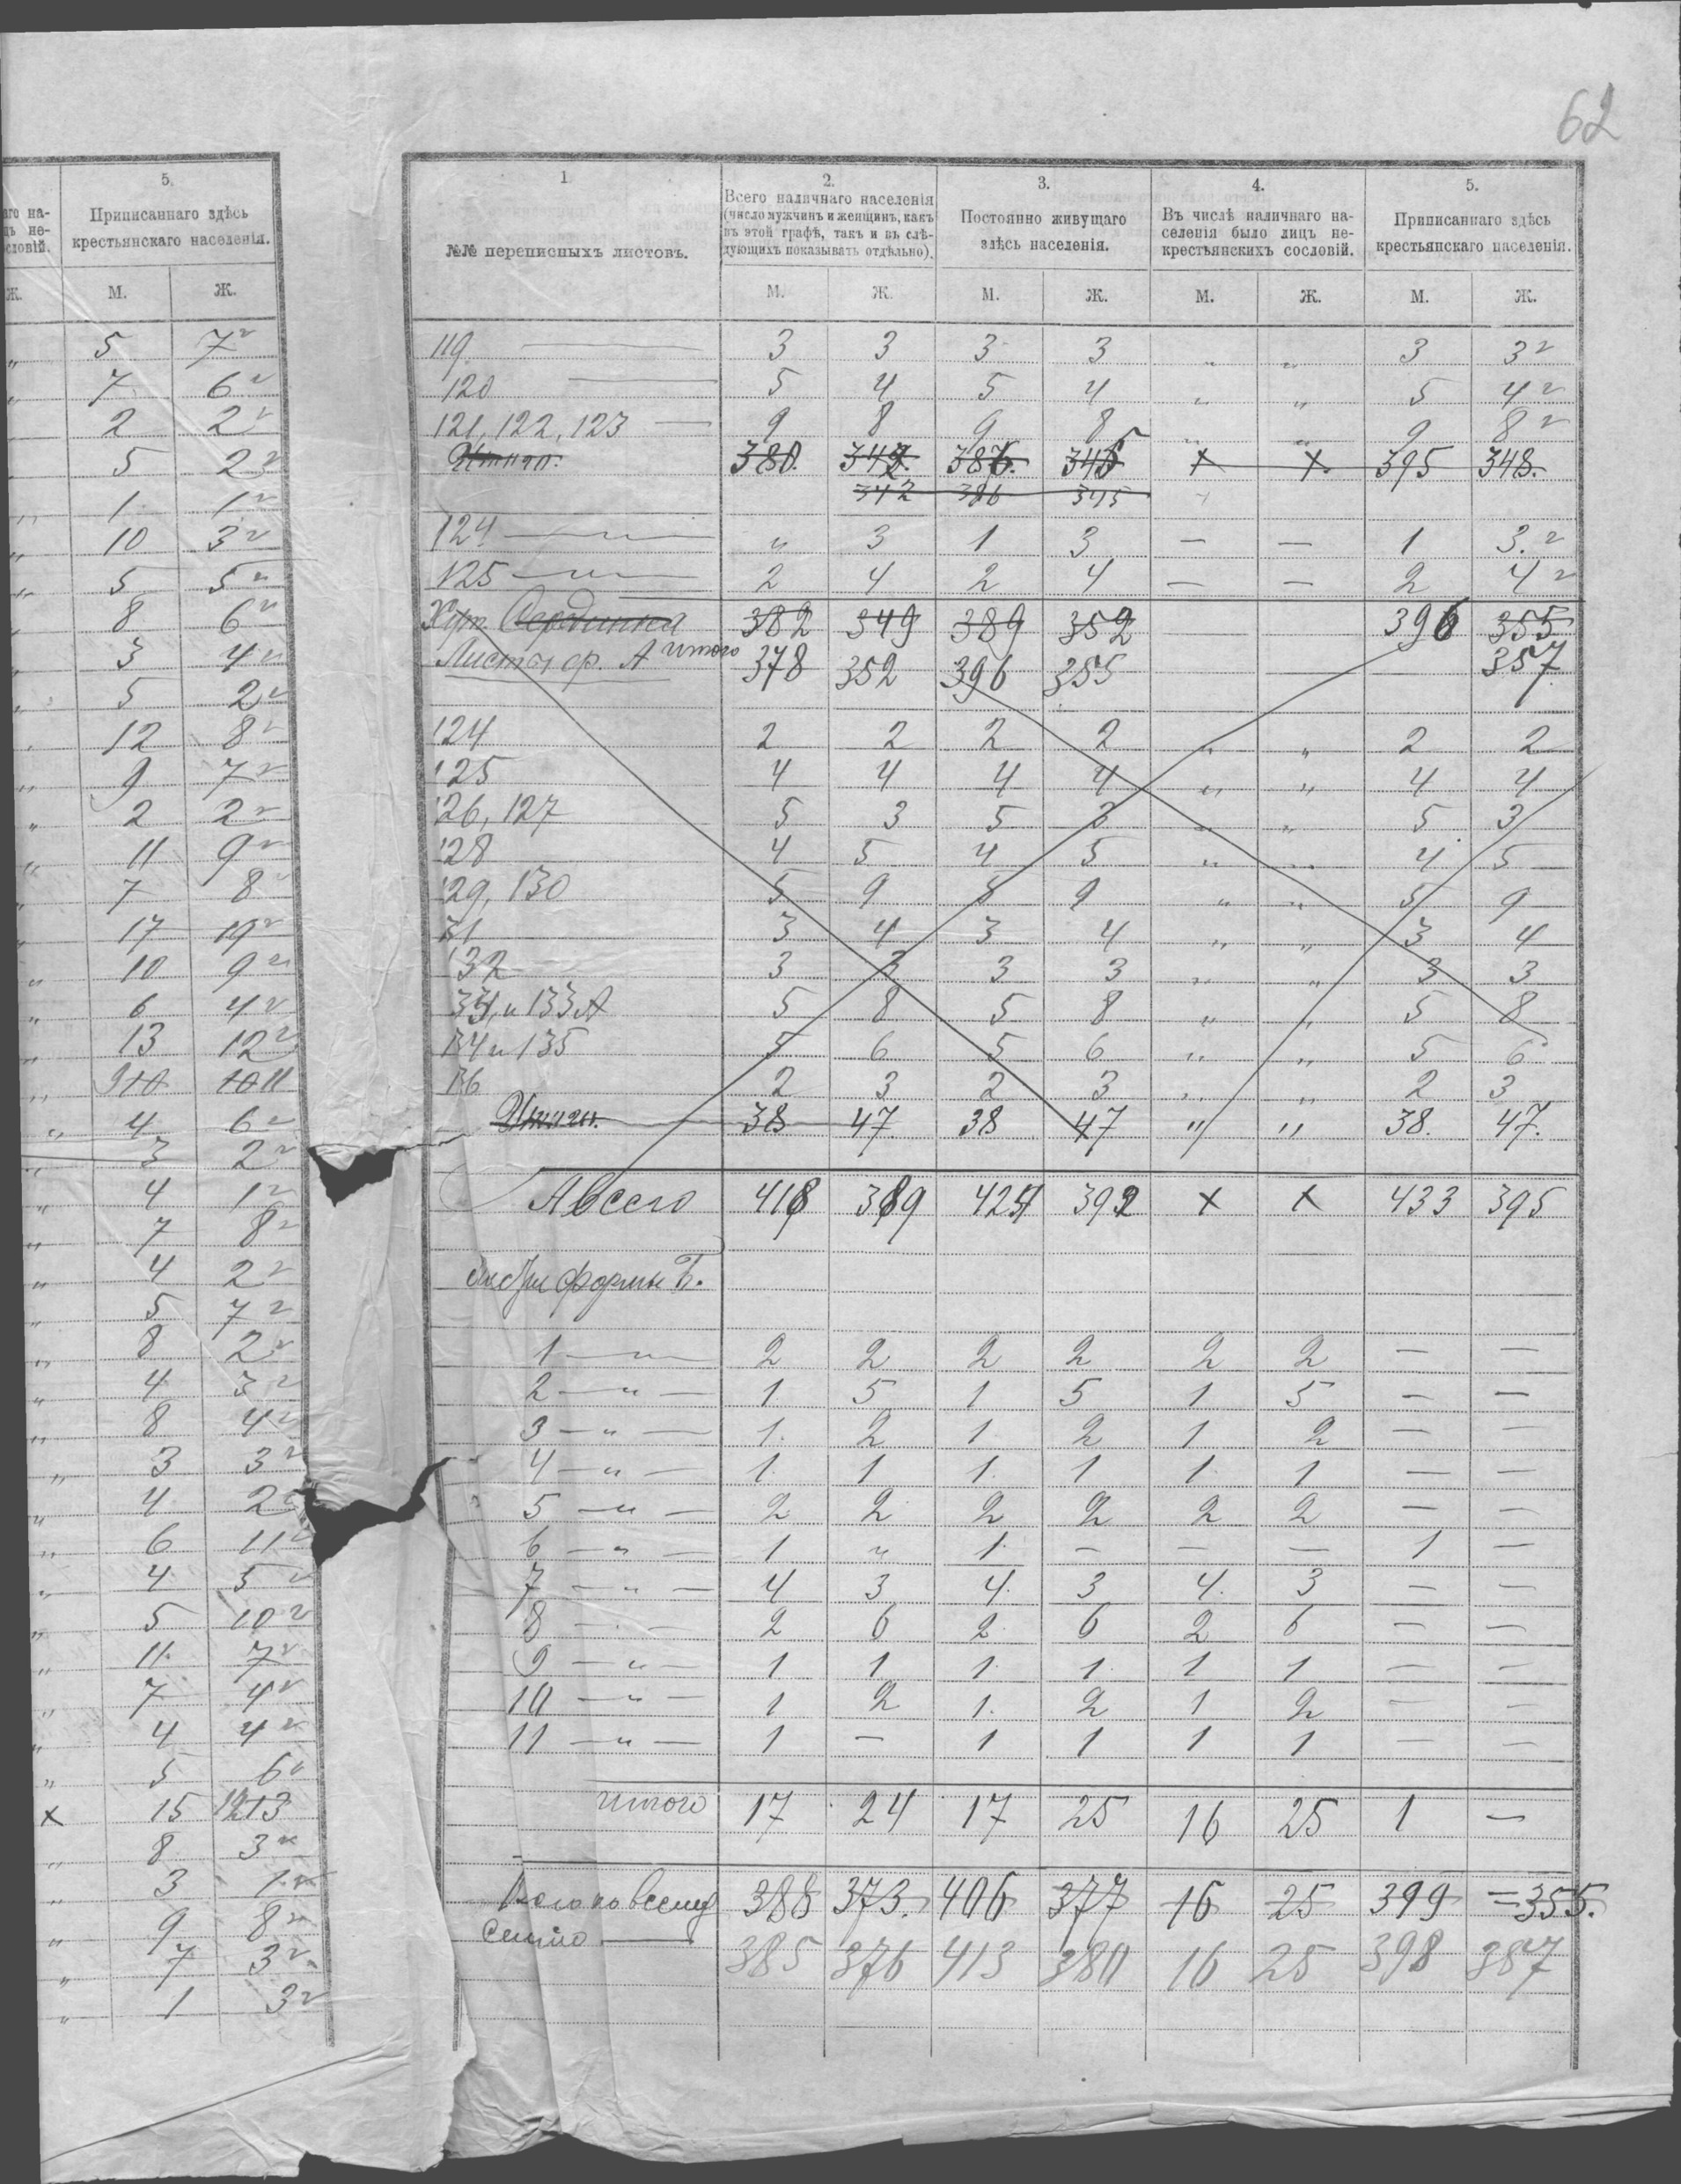 62
5.
аго на-
ць не-
словій.
Приписаннаго здѣсь
крестьянскаго населенія.
Ж. М. Ж.
" 5 7 v
" 7 6 v
2 2 v
5 2 v
" 1 1 v
" 10 3 v
" 5 5 v
" 8 6 v
" 3 4 v
5 2 v
" 12 8 v
" 9 7 v
" 2 2 v
" 11 9 v
" 7 8 v
" 17 19 v
" 10 9 v
" 6 4 v
" 13 12 v
" 11
" 4 6 v
" 3 2 v
" 4 1 v
" 7 8 v
" 4 2 v
" 5 7 v
" 8 2 v
" 4 3 v
" 8 4 v
" 3 3 v
" 4 2 v
" 6 11 v
" 4 5 v
" 5 10 v
" 11. 7 v
" 7 4 v
" 4 4 v
" 5 6 v
x 15 13
" 8 3 v
" 3 1 v
" 9 8 v
" 7 3 v
" 1 3 v
1 2. 3. 4. 5.
№№ переписныхъ листовъ.
Всего наличнаго населенія
(число мужчинъ и женщинъ, какъ
въ этой графѣ, такъ и въ слѣ-
дующихъ показывать отдѣльно).
Постоянно живущаго
здѣсь населенія.
Въ числѣ наличнаго на-
селенія было лицъ не-
крестьянскихъ сословій.
Приписаннаго здѣсь
крестьянскаго населенія.
М. Ж. М. Ж. М. Ж. М. Ж.
119 — 3 3 3 3 " " 3 3 v
120 — 5 4 5 4 " " 5 4 v
121, 122, 123 — 9 8 9 8 " " 9 8 v
Итого. 380. 342. 386. 345 x x 395 348.
342 386 345
124 — " — " 3 1 3 — — 1 3. v
125 — " — 2 4 2 4 — — 2 4 v
Хут. Середина 382 349 389 352 396 355
Листы ф. А итого 378 352 396 355 357
124 2 2 2 2 " " 2 2
125 4 4 4 4 " " 4 4
126, 127 5 3 5 3 " " 5 3
128 4 5 4 5 " " 4 5
129, 130 5 9 5 9 " " 5 9
131 3 4 3 4 " " 3 4
132 3 3 3 3 " " 3 3
133 и 133 А 5 8 5 8 " " 5 8
134 и 135 5 6 5 6 " " 5 6
136 2 3 2 3 " " 2 3
Итого. 38 47. 38 47 " " 38. 47.
А всего 418 389 427 392 x x 433 395
формы Б.
1 — " — 2 2 2 2 2 2 — —
2 — " — 1 5 1 5 1 5 — —
3 — " — 1. 2 1 2 1 2 — —
4 — " — 1 1 1 1 1 1 — —
5 — " — 2 2 2 2 2 2 — —
6 — " — 1 " 1 — — — 1 —
7 — " — 4 3 4. 3 4. 3 — —
8 — " — 2 6 2 6 2 6 — —
9 — " — 1 1 1 1 1 1 — —
10 — " — 1 2 1. 2 1 2 — —
11 — " — 1 — 1 1 1 1 — —
итого 17 24 17 25 16 25 1 —
по всему 388 373. 406 377 16 25 399 — 355.
385 376 413 380 16 25 398 357